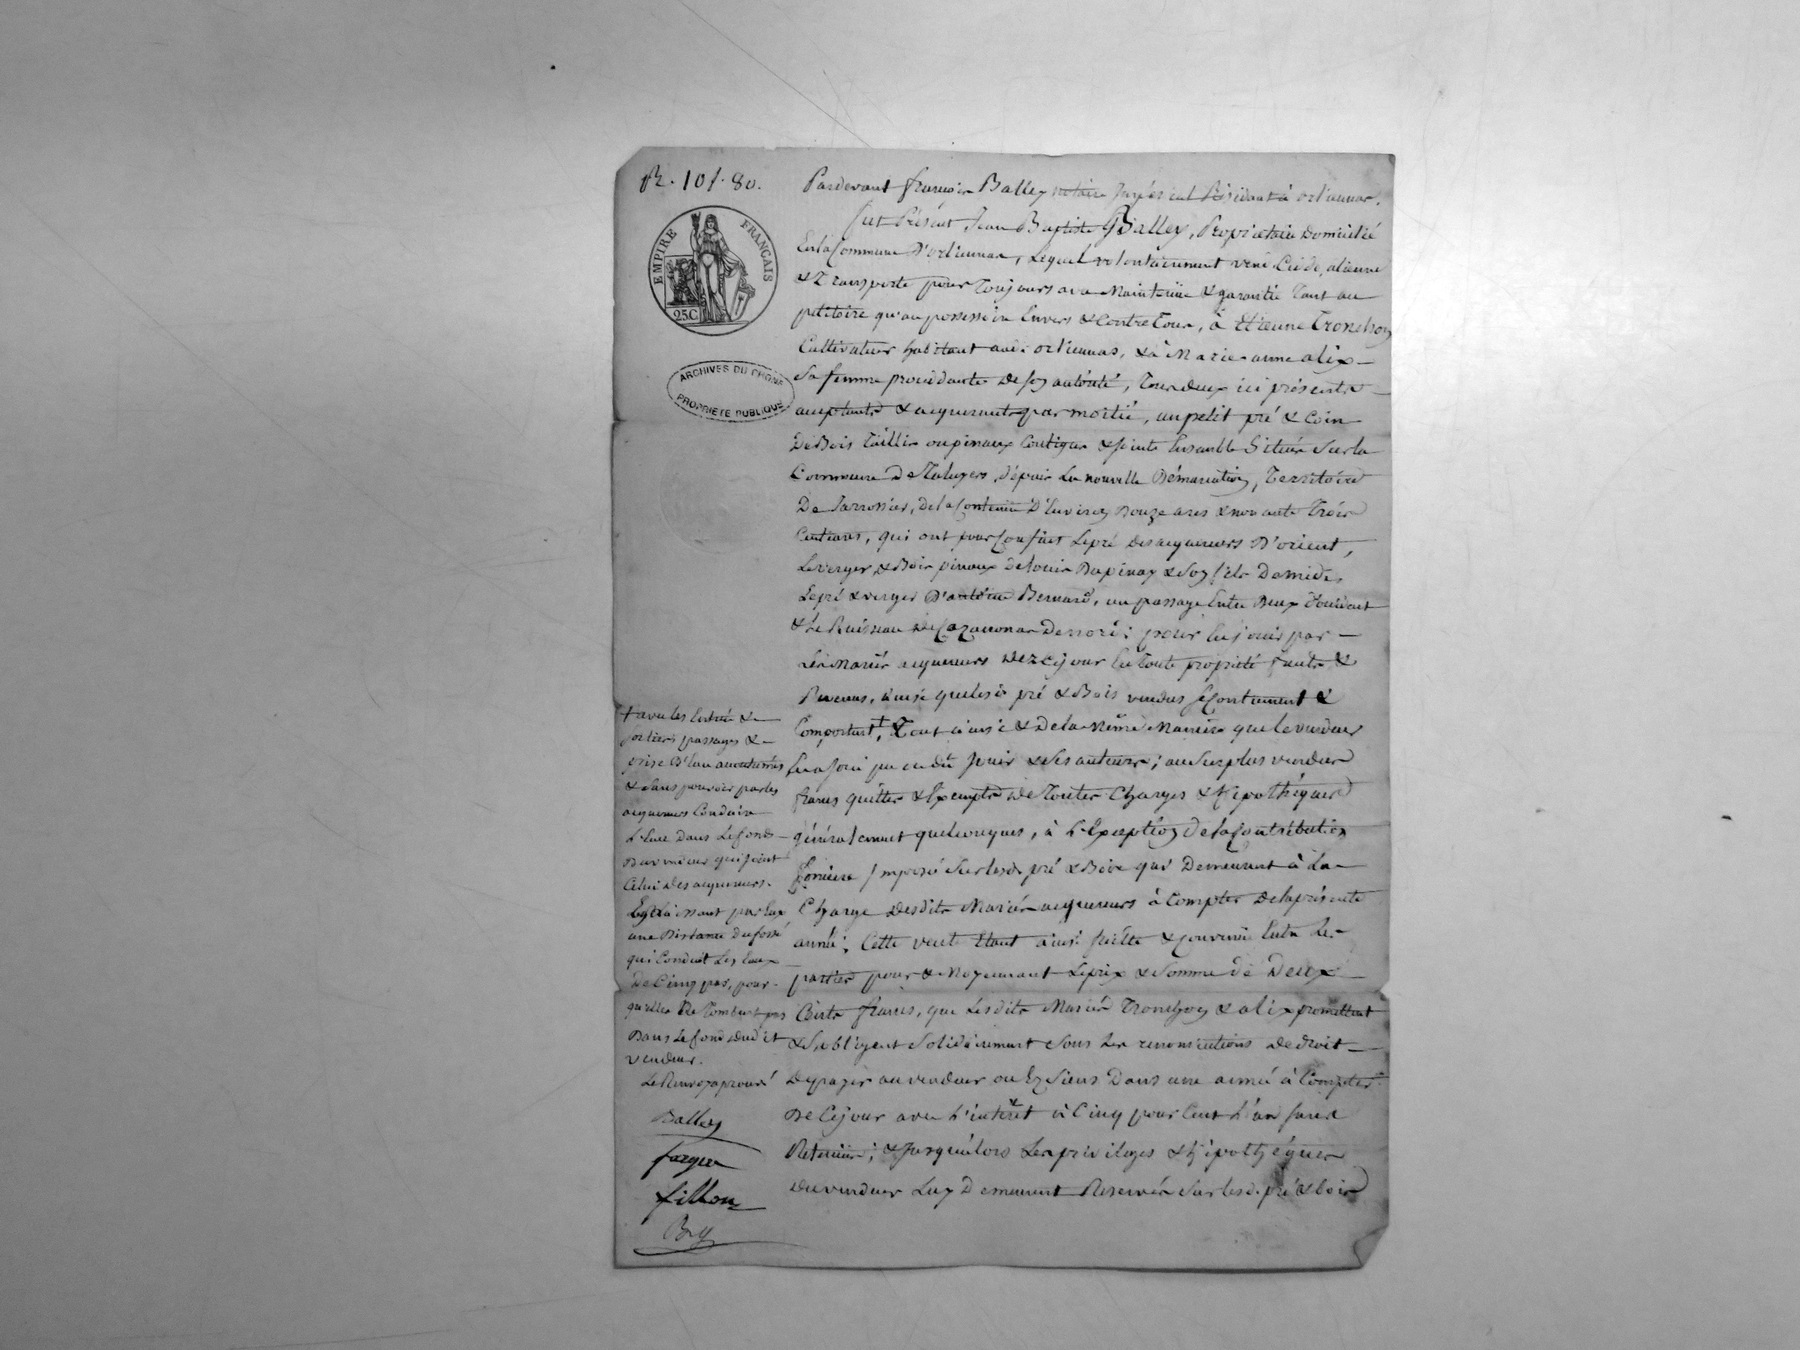 R. 10f. 80.
EMPIRE FRANÇAIS
25C
ARCHIVES DU RHONE
PROPRIETE PUBLIQUE
Pardevant françois Balley notaire Impérial Résidant à orliennas.
fut Présent Jean Baptiste Balley, Propriétaire Domicilié
En la Commune D'orliennas, Lequel volontairement vend Cède, aliène
& Transporte pour Toujours avec Maintenüe & garantie Tant au
petitoire qu'au possessoire Envers & Contre Tous, à Etienne Tronchon
Cultivateur habitant aud. orliennas, & à Marie anne alix
Sa femme procédante De son autorité, Tous deux ici présents
acceptants & acquerants par moitié, un petit pré & Coin
De Bois Taillis ou pinaux Contigus & joints Ensemble Situés Sur la
Commune De Taluyers, Dépuis La nouvelle Démarcation, Territoire
De Jarrossier, De la Contenüe D'Environ Douze ares & novante Trois
Centiares, qui ont pour Confins Le pré Des acquereurs D'orient,
Le verger & Bois pinaux De Louis Dupinay & Son fils De midi,
Le pré & verger D'antoine Bernard, un passage Entre Deux
& Le Ruisseau De Cazaconas De nord; pour En jouir par
Les Mariés acquereurs Dez Ce jour En Toute proprieté fruits &
Revenus, ainsi que lesd. pré & Bois vendus se Contiennent &
Comportent †, Tout ainsi & De la Même Manière que Le vendeur
En a Joui pu ou dû Jouir & Ses auteurs; au Surplus vendus
francs quittes & Exempts De Toutes Charges & hipothéques
généralement quelconques, à L'Exception De la Contribution
fonciere Imposée Sur lesd. pré & Bois qui Demeurent à La
Charge Desdits Mariés acquereurs à Compter De la présente
année; Cette vente Etant ainsi faitte & Convenüe Entre Les
parties pour & Moyennant Le prix & Somme De Deux
Cents francs, que Lesdits Mariés Tronchon & alix promettent
& S'obligent Solidairement Sous Les renonciations De droit
De payer au vendeur ou Ez Siens Dans une année à Compter
De Ce jour avec L'intérêt à Cinq pour Cent L'an Sans
Retenüe; & Jusqu'alors Les privileges & hipothéques
Du vendeur Luy Demeurent Reservés Sur lesd. pré & bois
† avec les Entrées &
Sorties passages &
prise D'Eau accoutumés
& Sans pouvoir par les
acquereurs Conduire
L'Eau Dans Le fonds
Du vendeur qui joint
Celui Des acquereurs.
Laissant par Eux
une Distance Du fossé
qui Conduit Les Eaux
De Cinq pas, pour
qu'elles Ne Tombent pas
Dans Le fond Dudit
vendeur.
Le Renvoy aprouvé
Balley
fargue
fillon
Bry